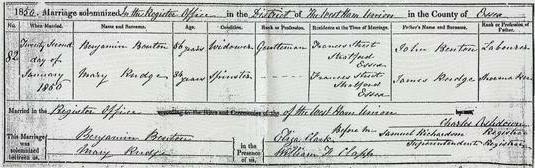 1850. Marriage solemnized In the Register Office in the District of The West Ham Union in the County of Essex
Name and Surname. Age. Condition. Rank or Profession. Residence at the Time of Marriage. Father's Name and Surname. Rank or Profession of Father.
82 Twenty Second day of January 1850
Benjamin Benton 56 years Widower Gentleman Frances Street Stratford Essex John Benton Labourer
Mary Rudge 34 years Spinster Frances Street Stratford Essex James Rudge Shoemaker
Married in the Register Office according to the Rites and Ceremonies of the of the West Ham Union
This Marriage was solemnized between us,
Benjamin Benton
Mary Rudge
in the Presence of us,
Eliza Clark
William Clapp
Before me
Charles Registrar
Samuel Richardson
Superintendent Registrar